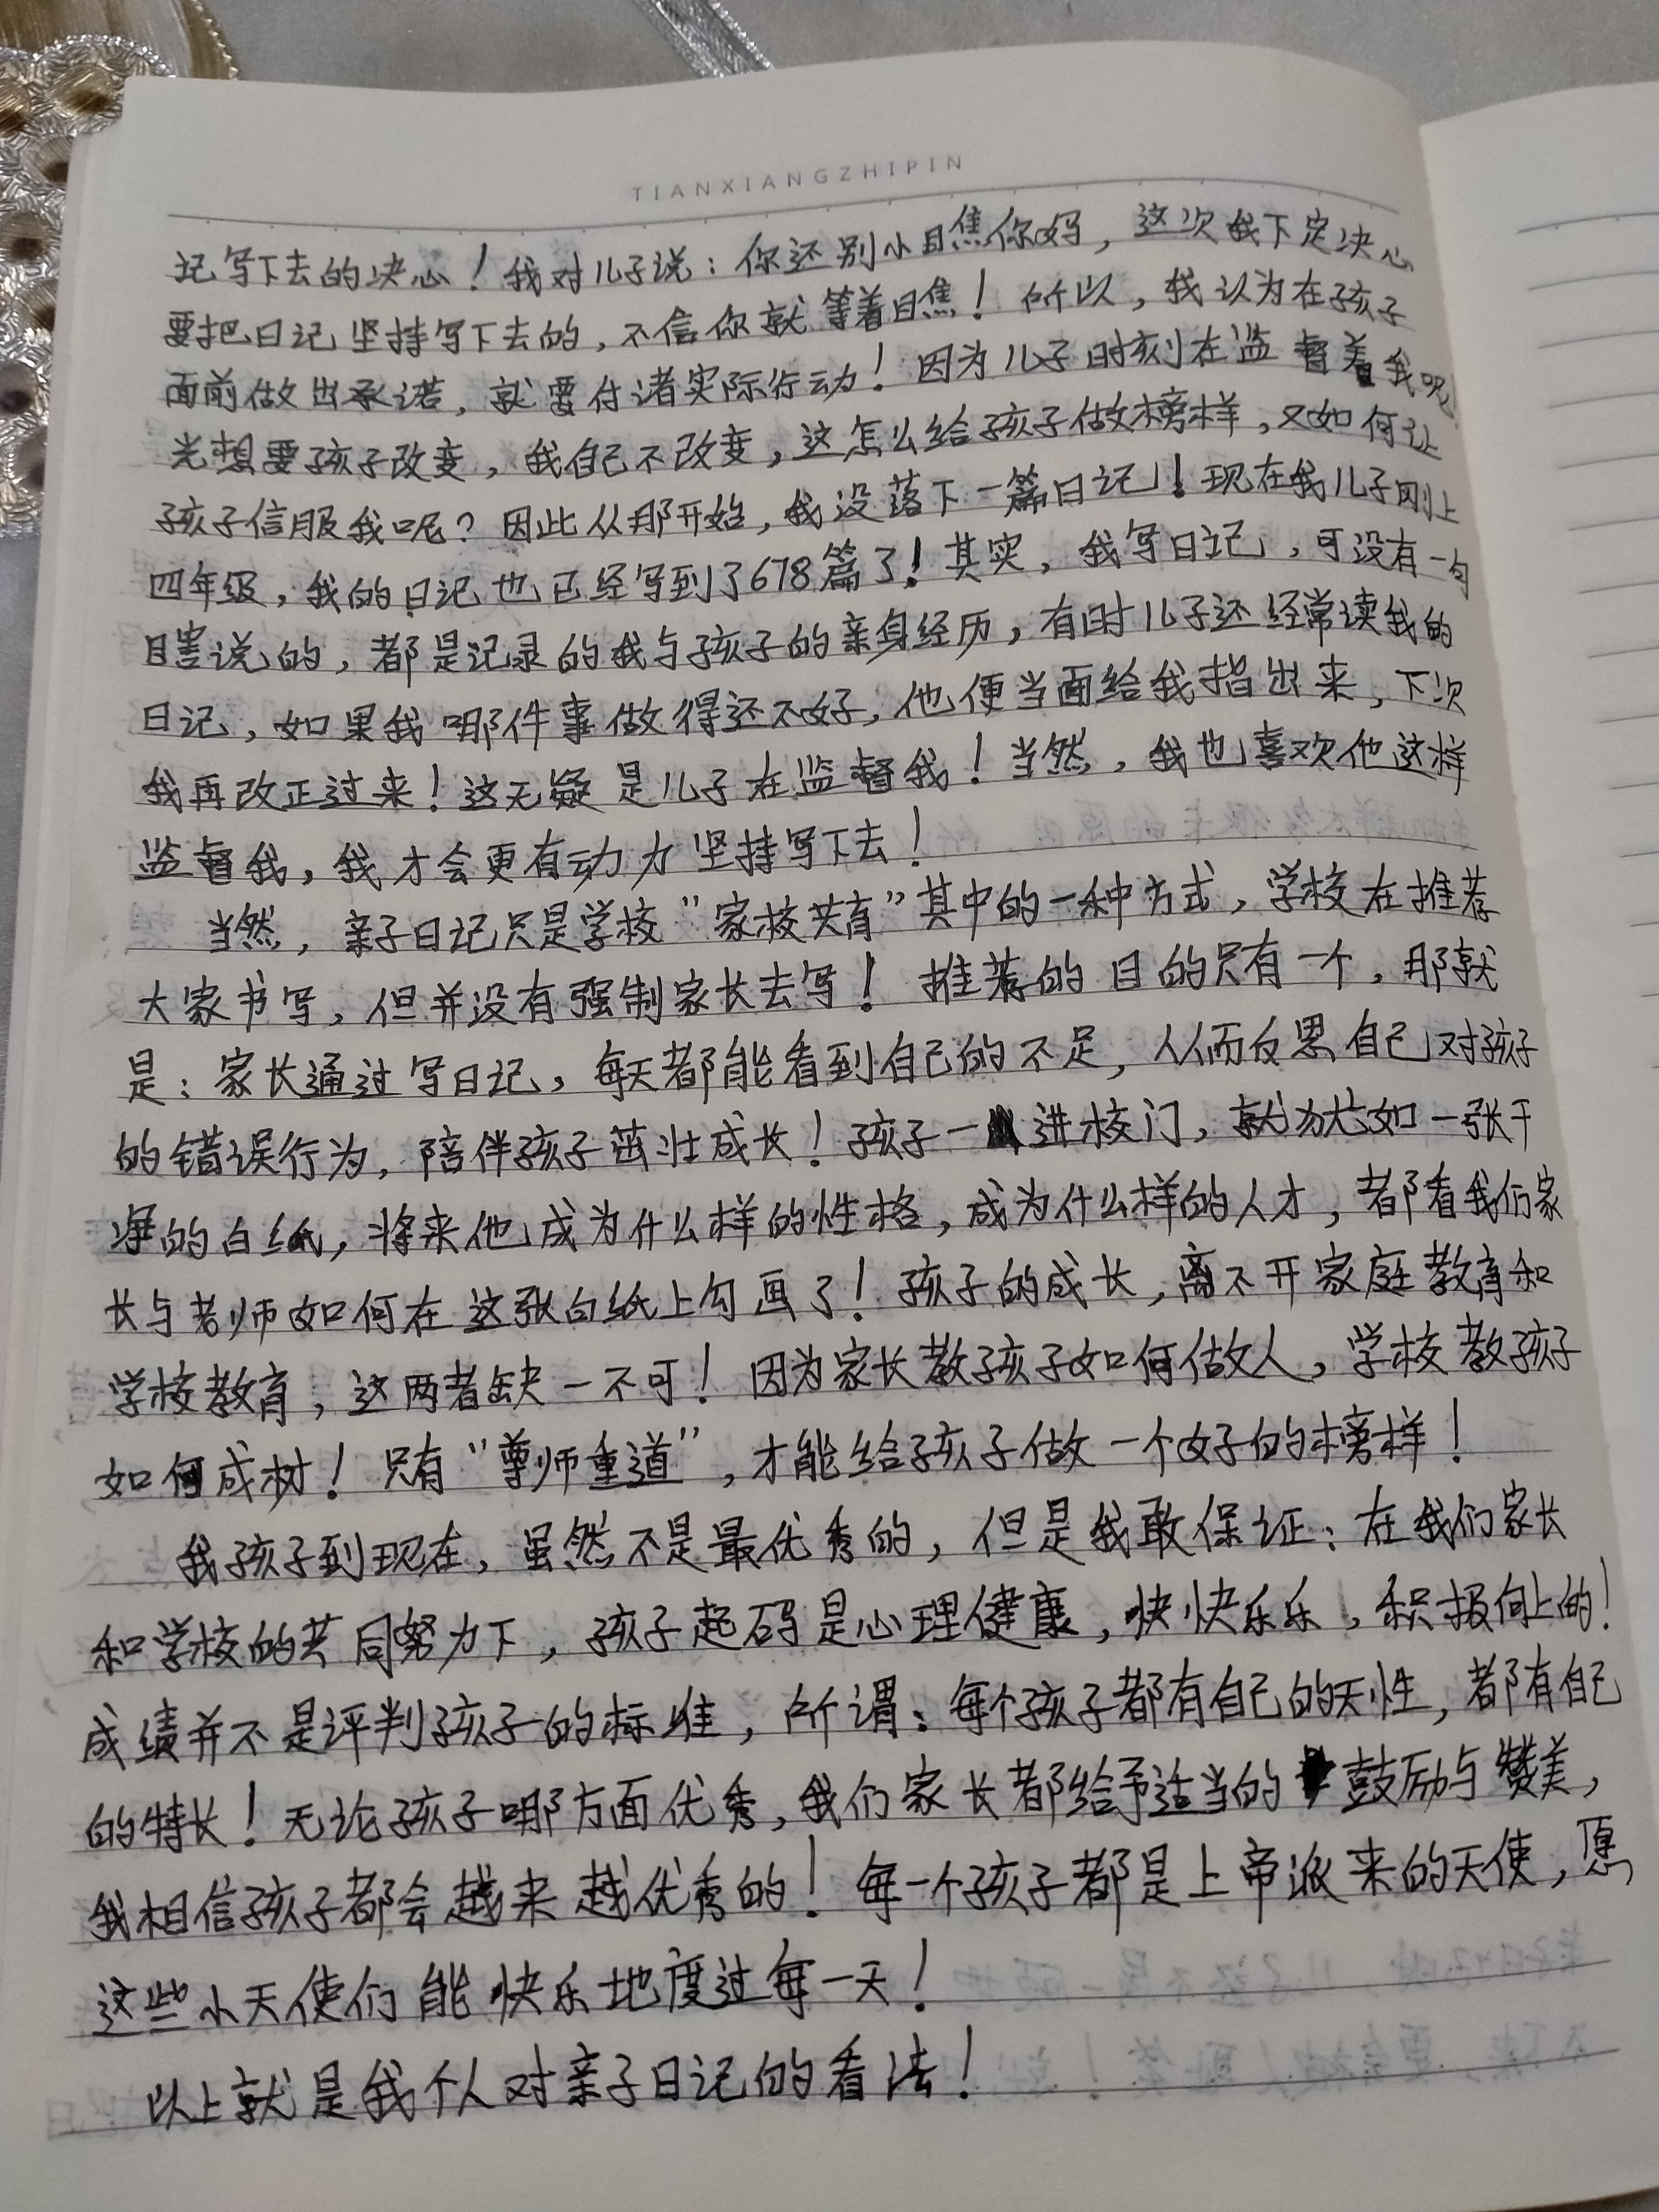 TIANXIANGZHIPIN
记写下去的决心！我对儿子说：你还别小瞧你妈，这次我下定决心
要把日记坚持写下去的，不信你就等着瞧！所以，我认为在孩子
面前做出承诺，就要付诸实际行动！因为儿子时刻在监督着我呢
光想要孩子改变，我自己不改变，这怎么给孩子做榜样，又如何让
孩子信服我呢？因此从那开始，我没落下一篇日记！现在我儿子刚上
四年级，我的日记也已经写到了678篇了！其实，我写日记，可没有一句
瞎说的，都是记录的我与孩子的亲身经历，有时儿子还经常读我的
日记，如果我哪件事做得还不好，他便当面给我指出来，下次
我再改正过来！这无疑是儿子在监督我！当然，我也喜欢他这样
监督我，我才会更有动力坚持写下去！
当然，亲子日记只是学校“家校共育”其中的一种方式，学校在推荐
大家书写，但并没有强制家长去写！推荐的目的只有一个，那就
是：家长通过写日记，每天都能看到自己的不足，从而反思自己对孩子
的错误行为，陪伴孩子茁壮成长！孩子一进校门，就犹如一张干
净的白纸，将来他成为什么样的性格，成为什么样的人才，都看我们家
长与老师如何在这张白纸上勾画了！孩子的成长，离不开家庭教育和
学校教育，这两者缺一不可！因为家长教孩子如何做人，学校教孩子
如何成树！只有“尊师重道”，才能给孩子做一个好的榜样！
我孩子到现在，虽然不是最优秀的，但是我敢保证：在我们家长
和学校的共同努力下，孩子起码是心理健康，快快乐乐，积极向上的！
成绩并不是评判孩子的标准，所谓：每个孩子都有自己的天性，都有自己
的特长！无论孩子哪方面优秀，我们家长都给予适当的鼓励与赞美，
我相信孩子都会越来越优秀的！每一个孩子都是上帝派来的天使，愿
这些小天使们能快乐地度过每一天！
以上就是我个人对亲子日记的看法！